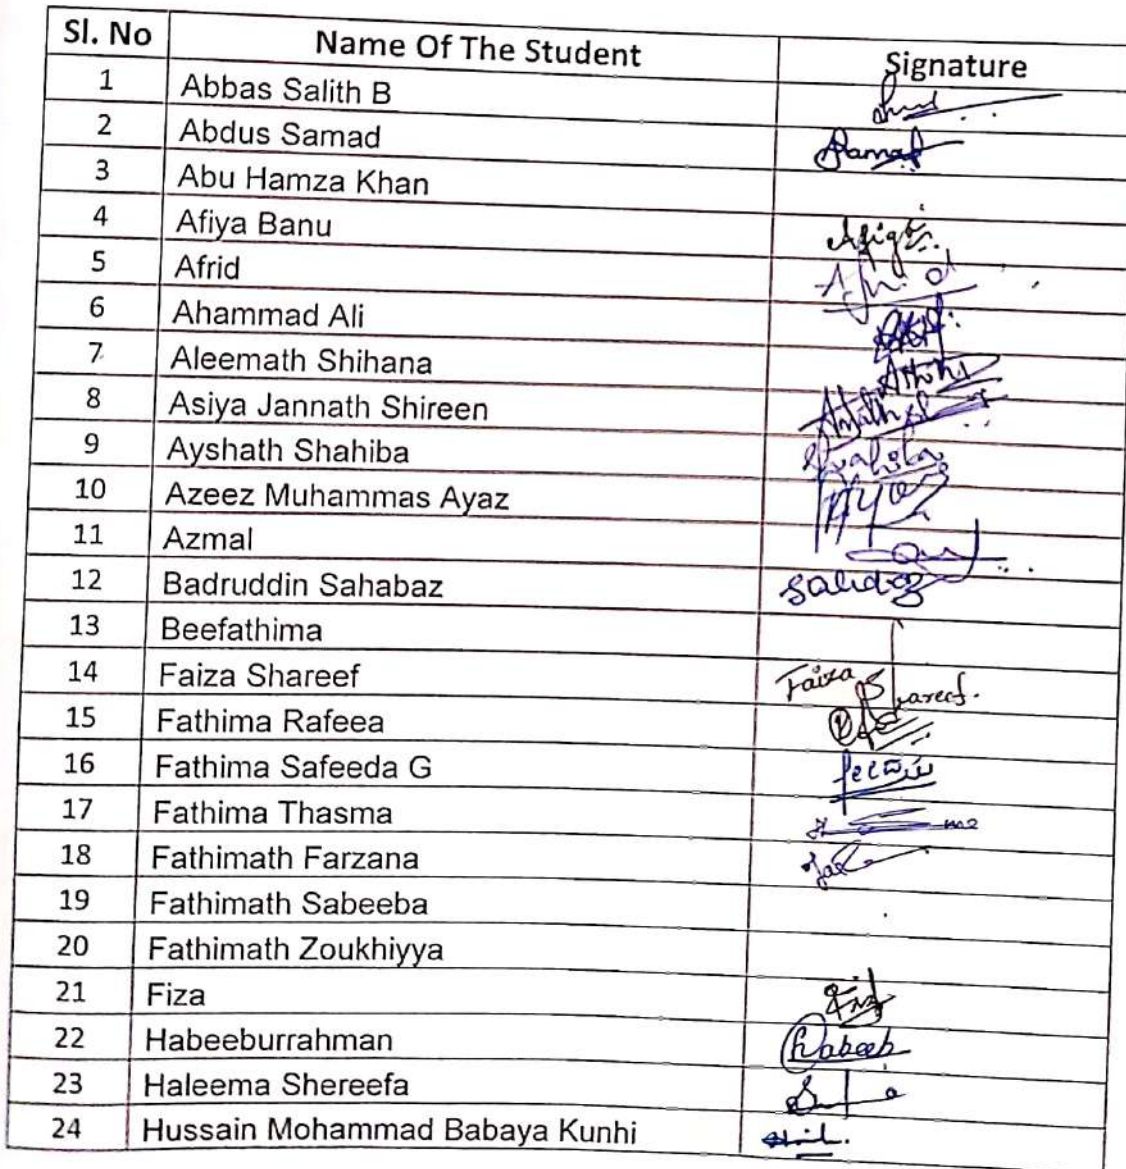 Sl. No Name Of The Student Signature
1 Abbas Salith B
2 Abdus Samad Samad
3 Abu Hamza Khan
4 Afiya Banu Afiya
5 Afrid Afrid
6 Ahammad Ali
7 Aleemath Shihana
8 Asiya Jannath Shireen
9 Ayshath Shahiba Shahiba
10 Azeez Muhammas Ayaz
11 Azmal
12 Badruddin Sahabaz
13 Beefathima
14 Faiza Shareef Faiza Shareef.
15 Fathima Rafeea
16 Fathima Safeeda G
17 Fathima Thasma
18 Fathimath Farzana
19 Fathimath Sabeeba
20 Fathimath Zoukhiyya
21 Fiza Fiza
22 Habeeburrahman Habeeb
23 Haleema Shereefa
24 Hussain Mohammad Babaya Kunhi